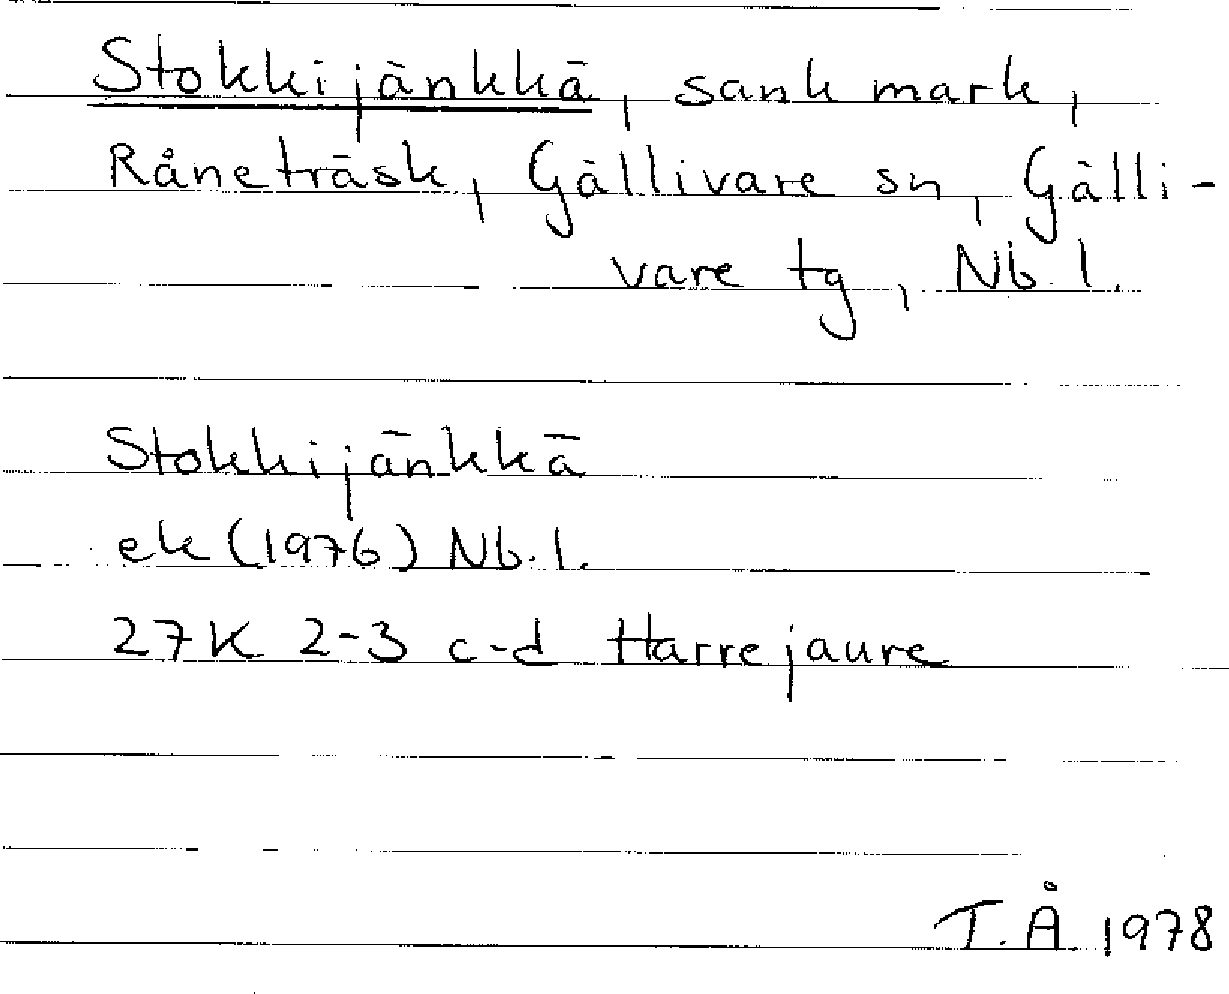 Stokkijänkkä, sank mark,
Råneträsk, Gällivare sn, Gälli-
vare tg, Nb. l.
Stokkijänkkä
ek (1976) Nb. l.
27K 2-3 c-d Harrejaure
T. Å 1978